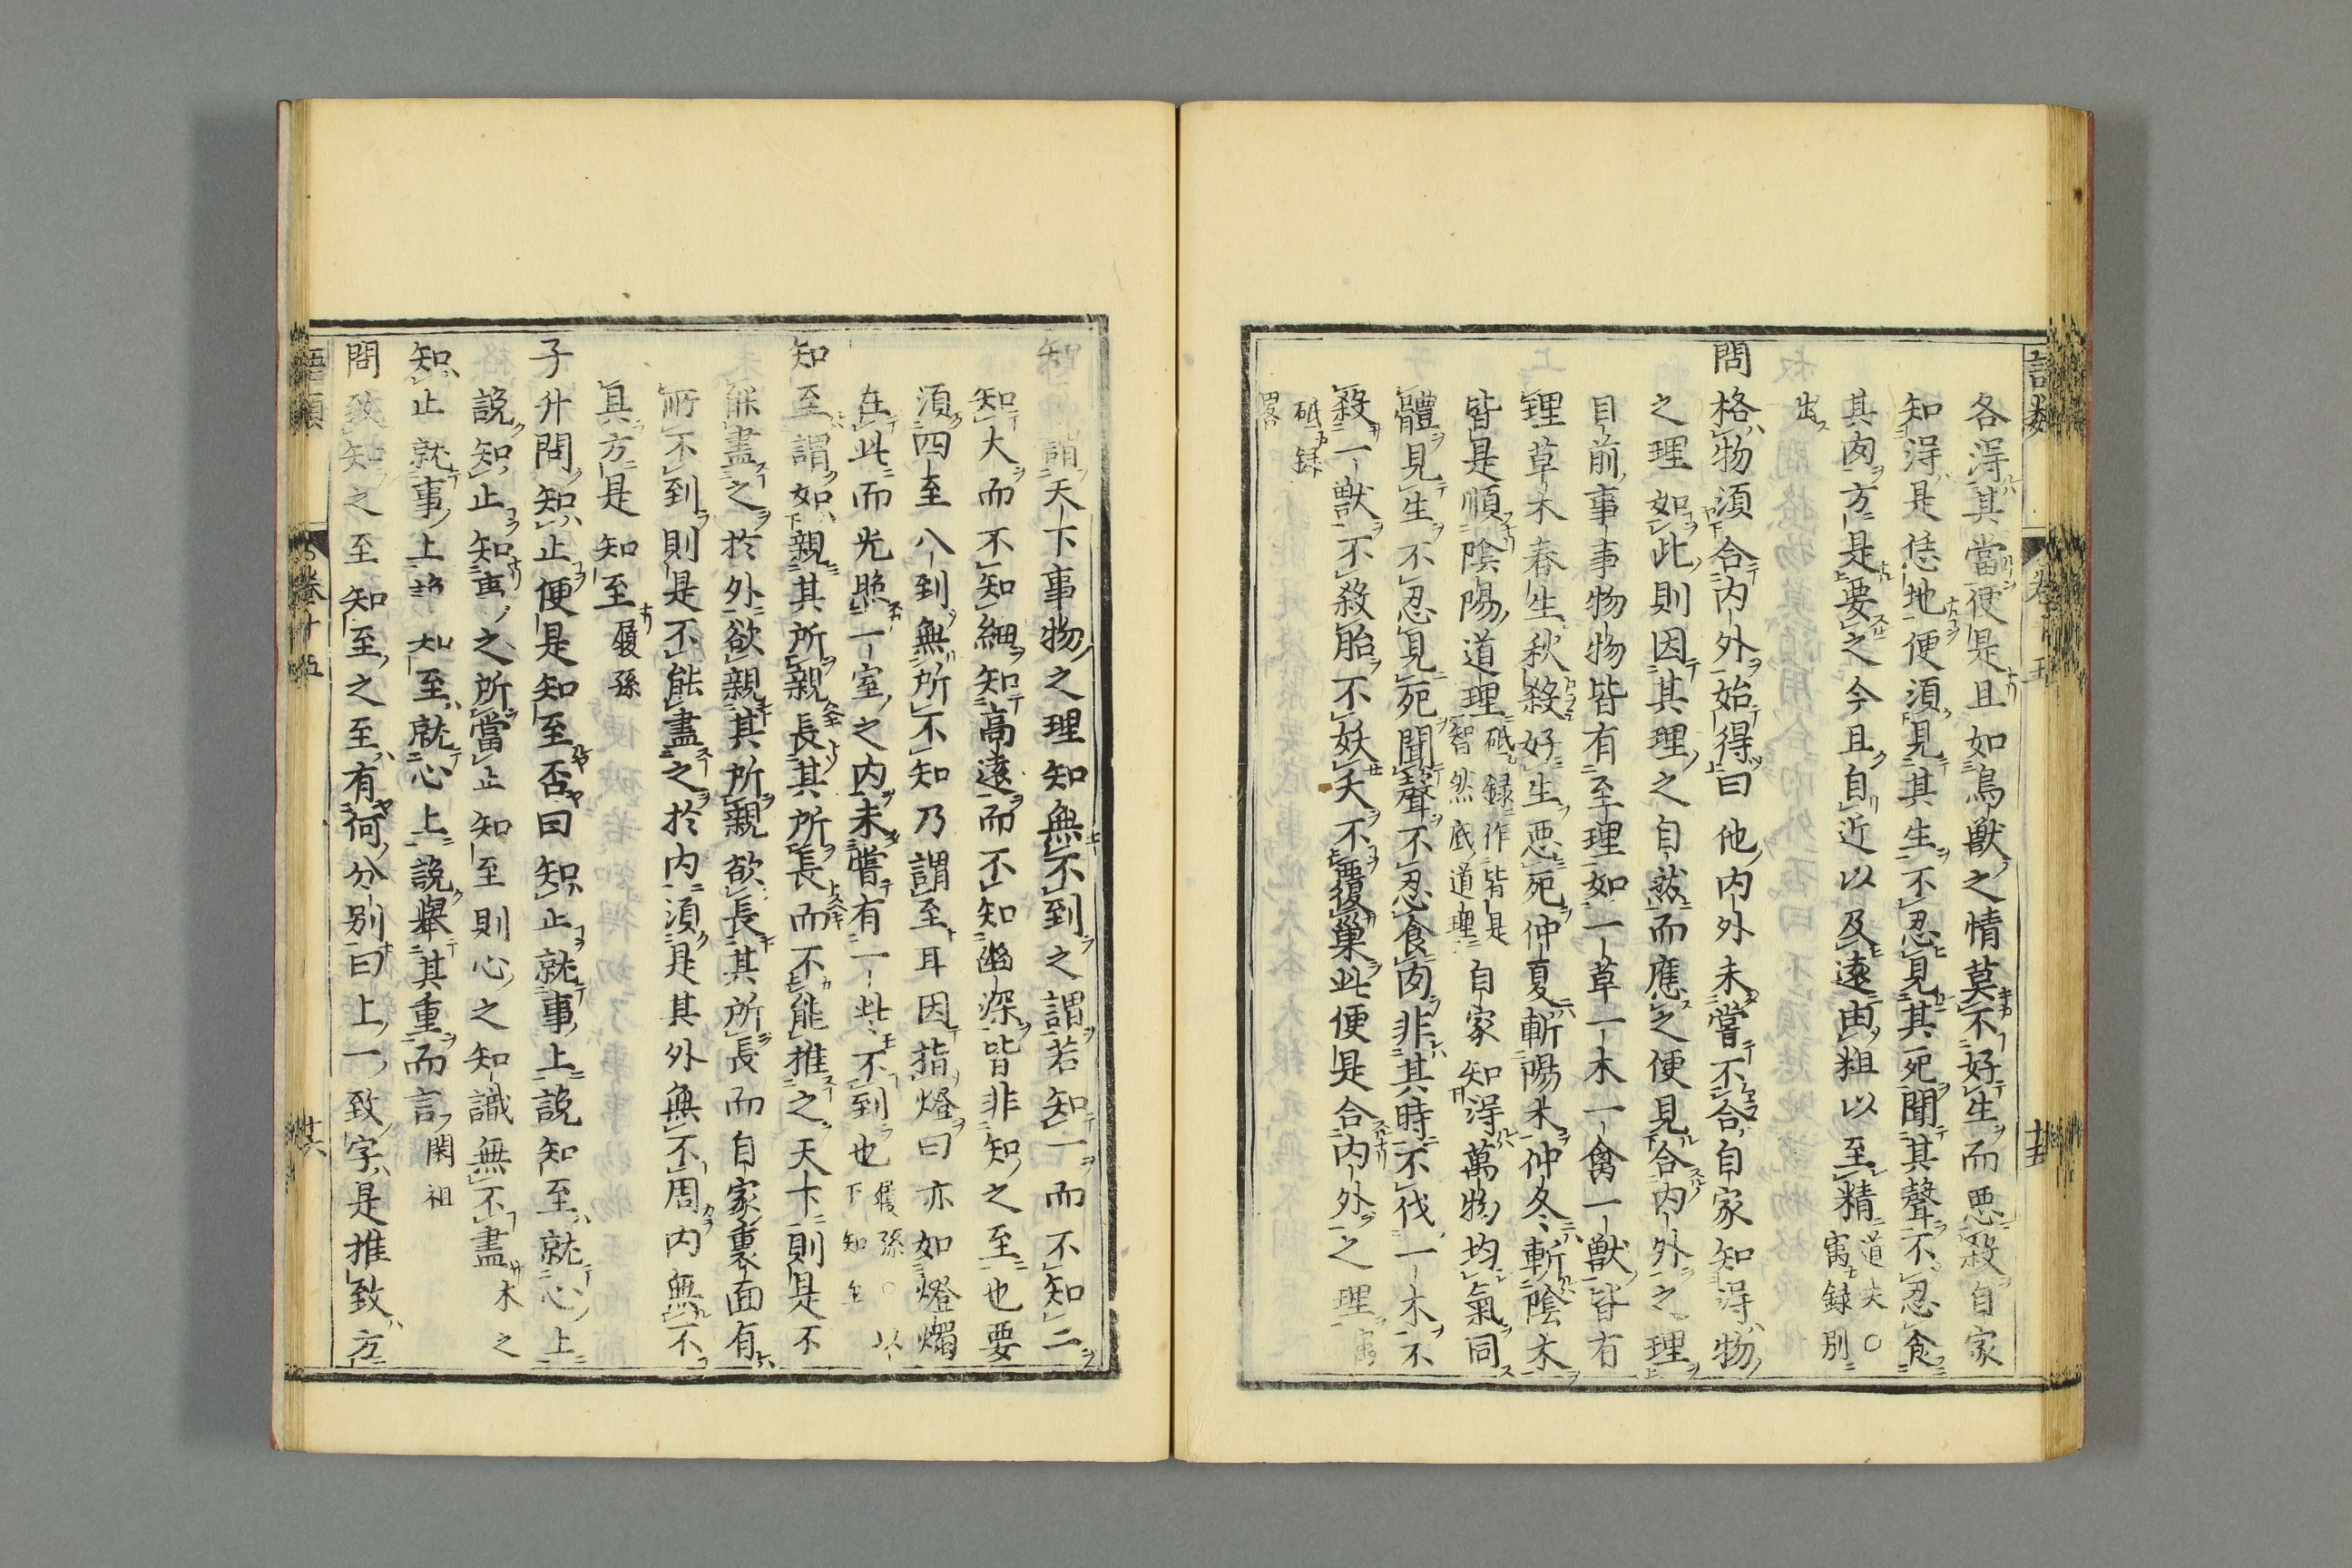 各淂其當便是且如鳥獸之情莫不好生而惡殺自家
知淂是恁地便須見其生不忍見其死聞其聲不忍食
其肉方是要之今且自近以及遠由粗以至精道夫○寓録別
出
問格物須合内外始得曰他内外未嘗不合自家知淂物
之理如此則因其理之自然而應之便見合内外之理
目前事事物物皆有至理如一草一木一禽一獸皆有
理草木春生秋殺好生惡死仲夏斬陽木仲冬斬陰木
皆是順陰陽道理砥録作皆是自然底道理自家知淂萬物均氣同
體見生不忍見死聞聲不忍食肉非其時不伐一木不
殺一獸不殺胎不妖夭不覆巢此便是合内外之理寓
砥録畧
知至謂天下事物之理知無不到之謂若知一而不知二
知大而不知細知高遠而不知幽深皆非知之至也要
須四至八到無所不知乃謂至耳因指燈曰亦如燈燭
在此而光照一室之内未嘗有一些不到也履孫○以下知至
知至謂如親其所親長其所長而不能推之天下則是不
能盡之於外欲親其所親欲長其所長而自家裏面有
所不到則是不能盡之於内須是其外無不周内無不
具方是知至履孫
子升問知止便是知至否曰知止就事上說知至就心上
說知止知事之所當止知至則心之知識無不盡木之
知止就事上說知至就心上說舉其重而言閎祖
問致知之至知至之至有何分別曰上一致字是推致方
語類
卷十五
十五
十六